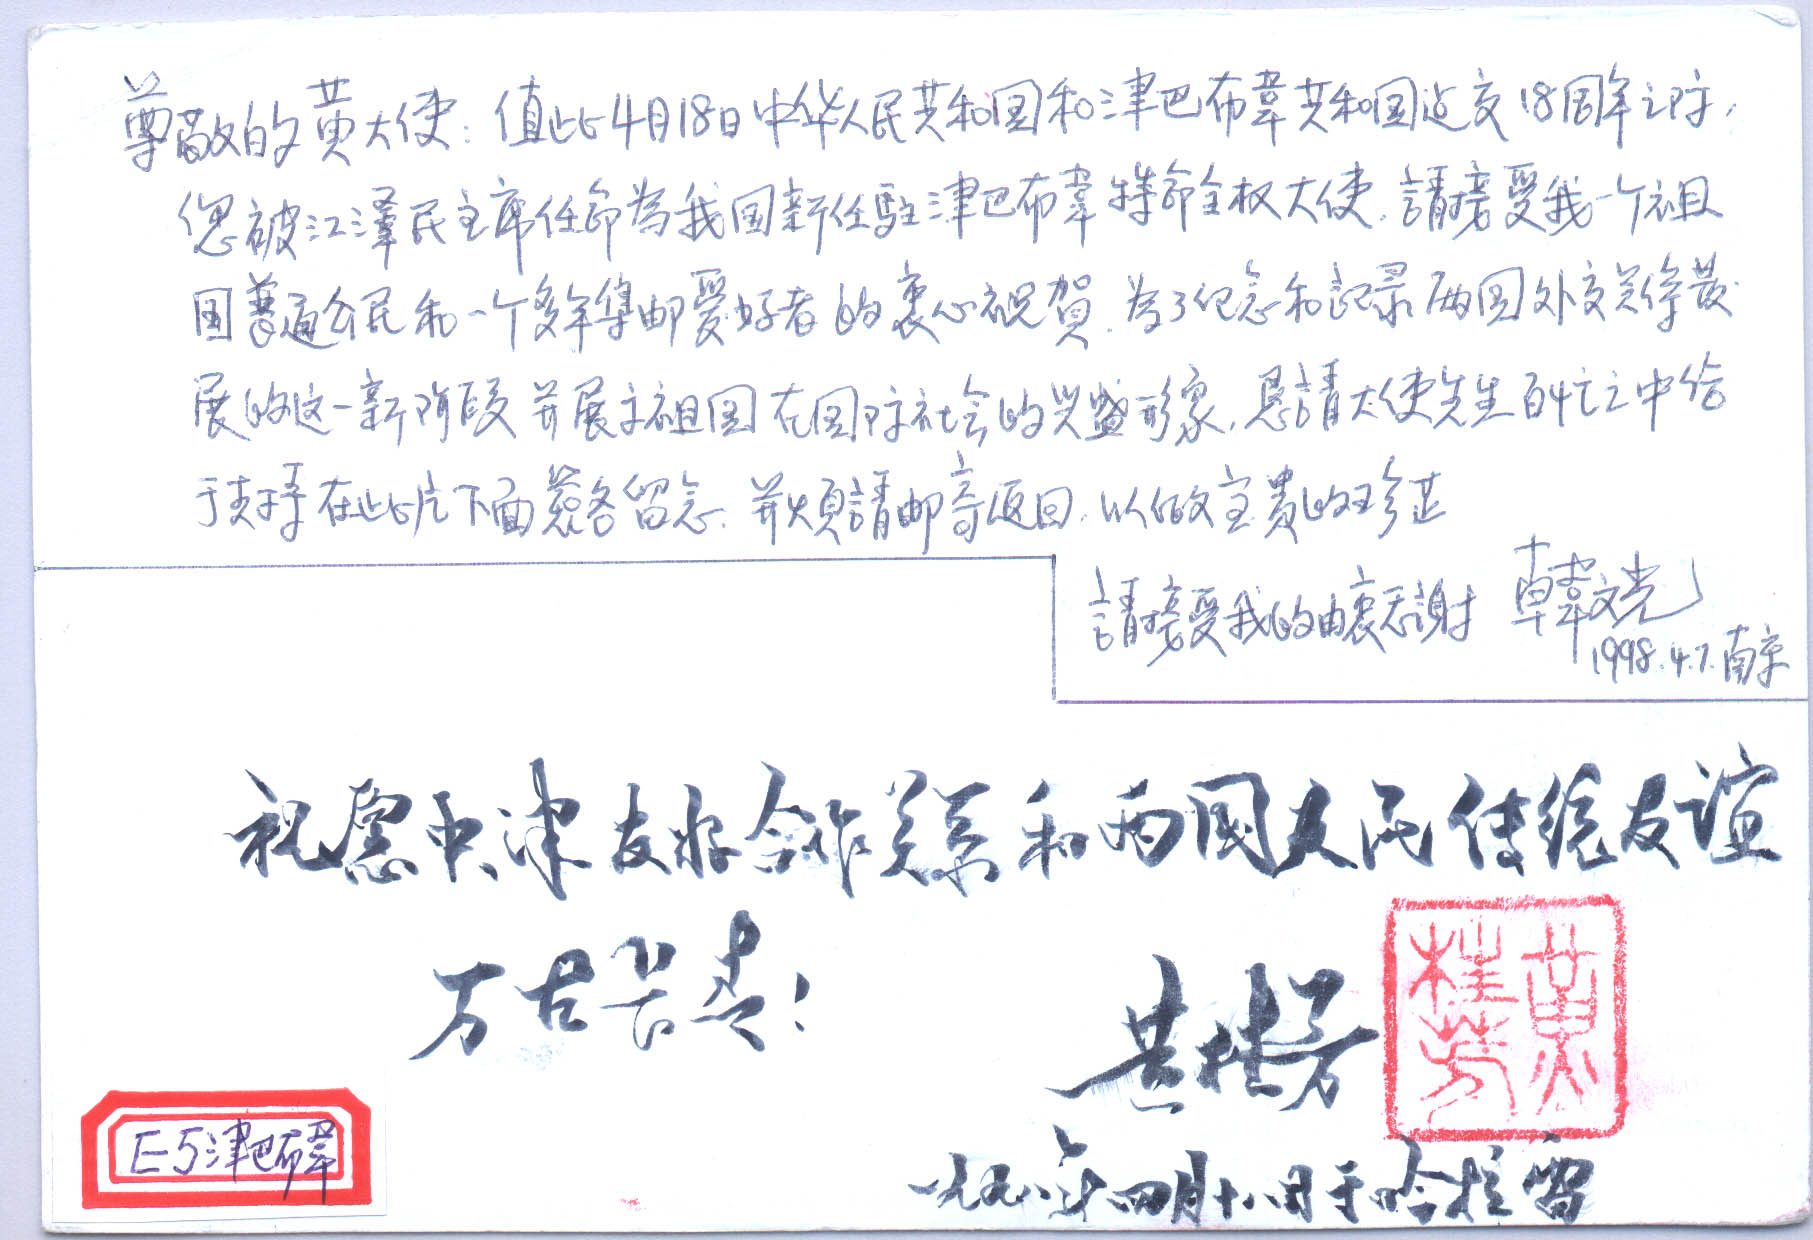 尊敬的黄大使：值此4月18日中华人民共和国和津巴布韋共和国边交18周年之际，
您被江澤民主席任命為我国新任駐津巴布韋特命全权大使，請接受我一个祖
国普通公民和一个多年集邮愛好者的衷心祝賀。為了纪念和記录两国外交关係發
展的这一新阶段并展示祖国在国际社会的兴盛形象，恳請大使先生百忙之中给
于支持在此片下面簽名留念，并煩請邮寄返回，以做宝貴的珍芷
請接受我的由衷恣謝 韓文光
1998.4.7.南京
祝愿中津友好合作关系和两國人民传统友谊
万古长青！
黄桂芳
黄桂芳
一九九八年四月十八日于哈拉雷
E-5津巴布韋